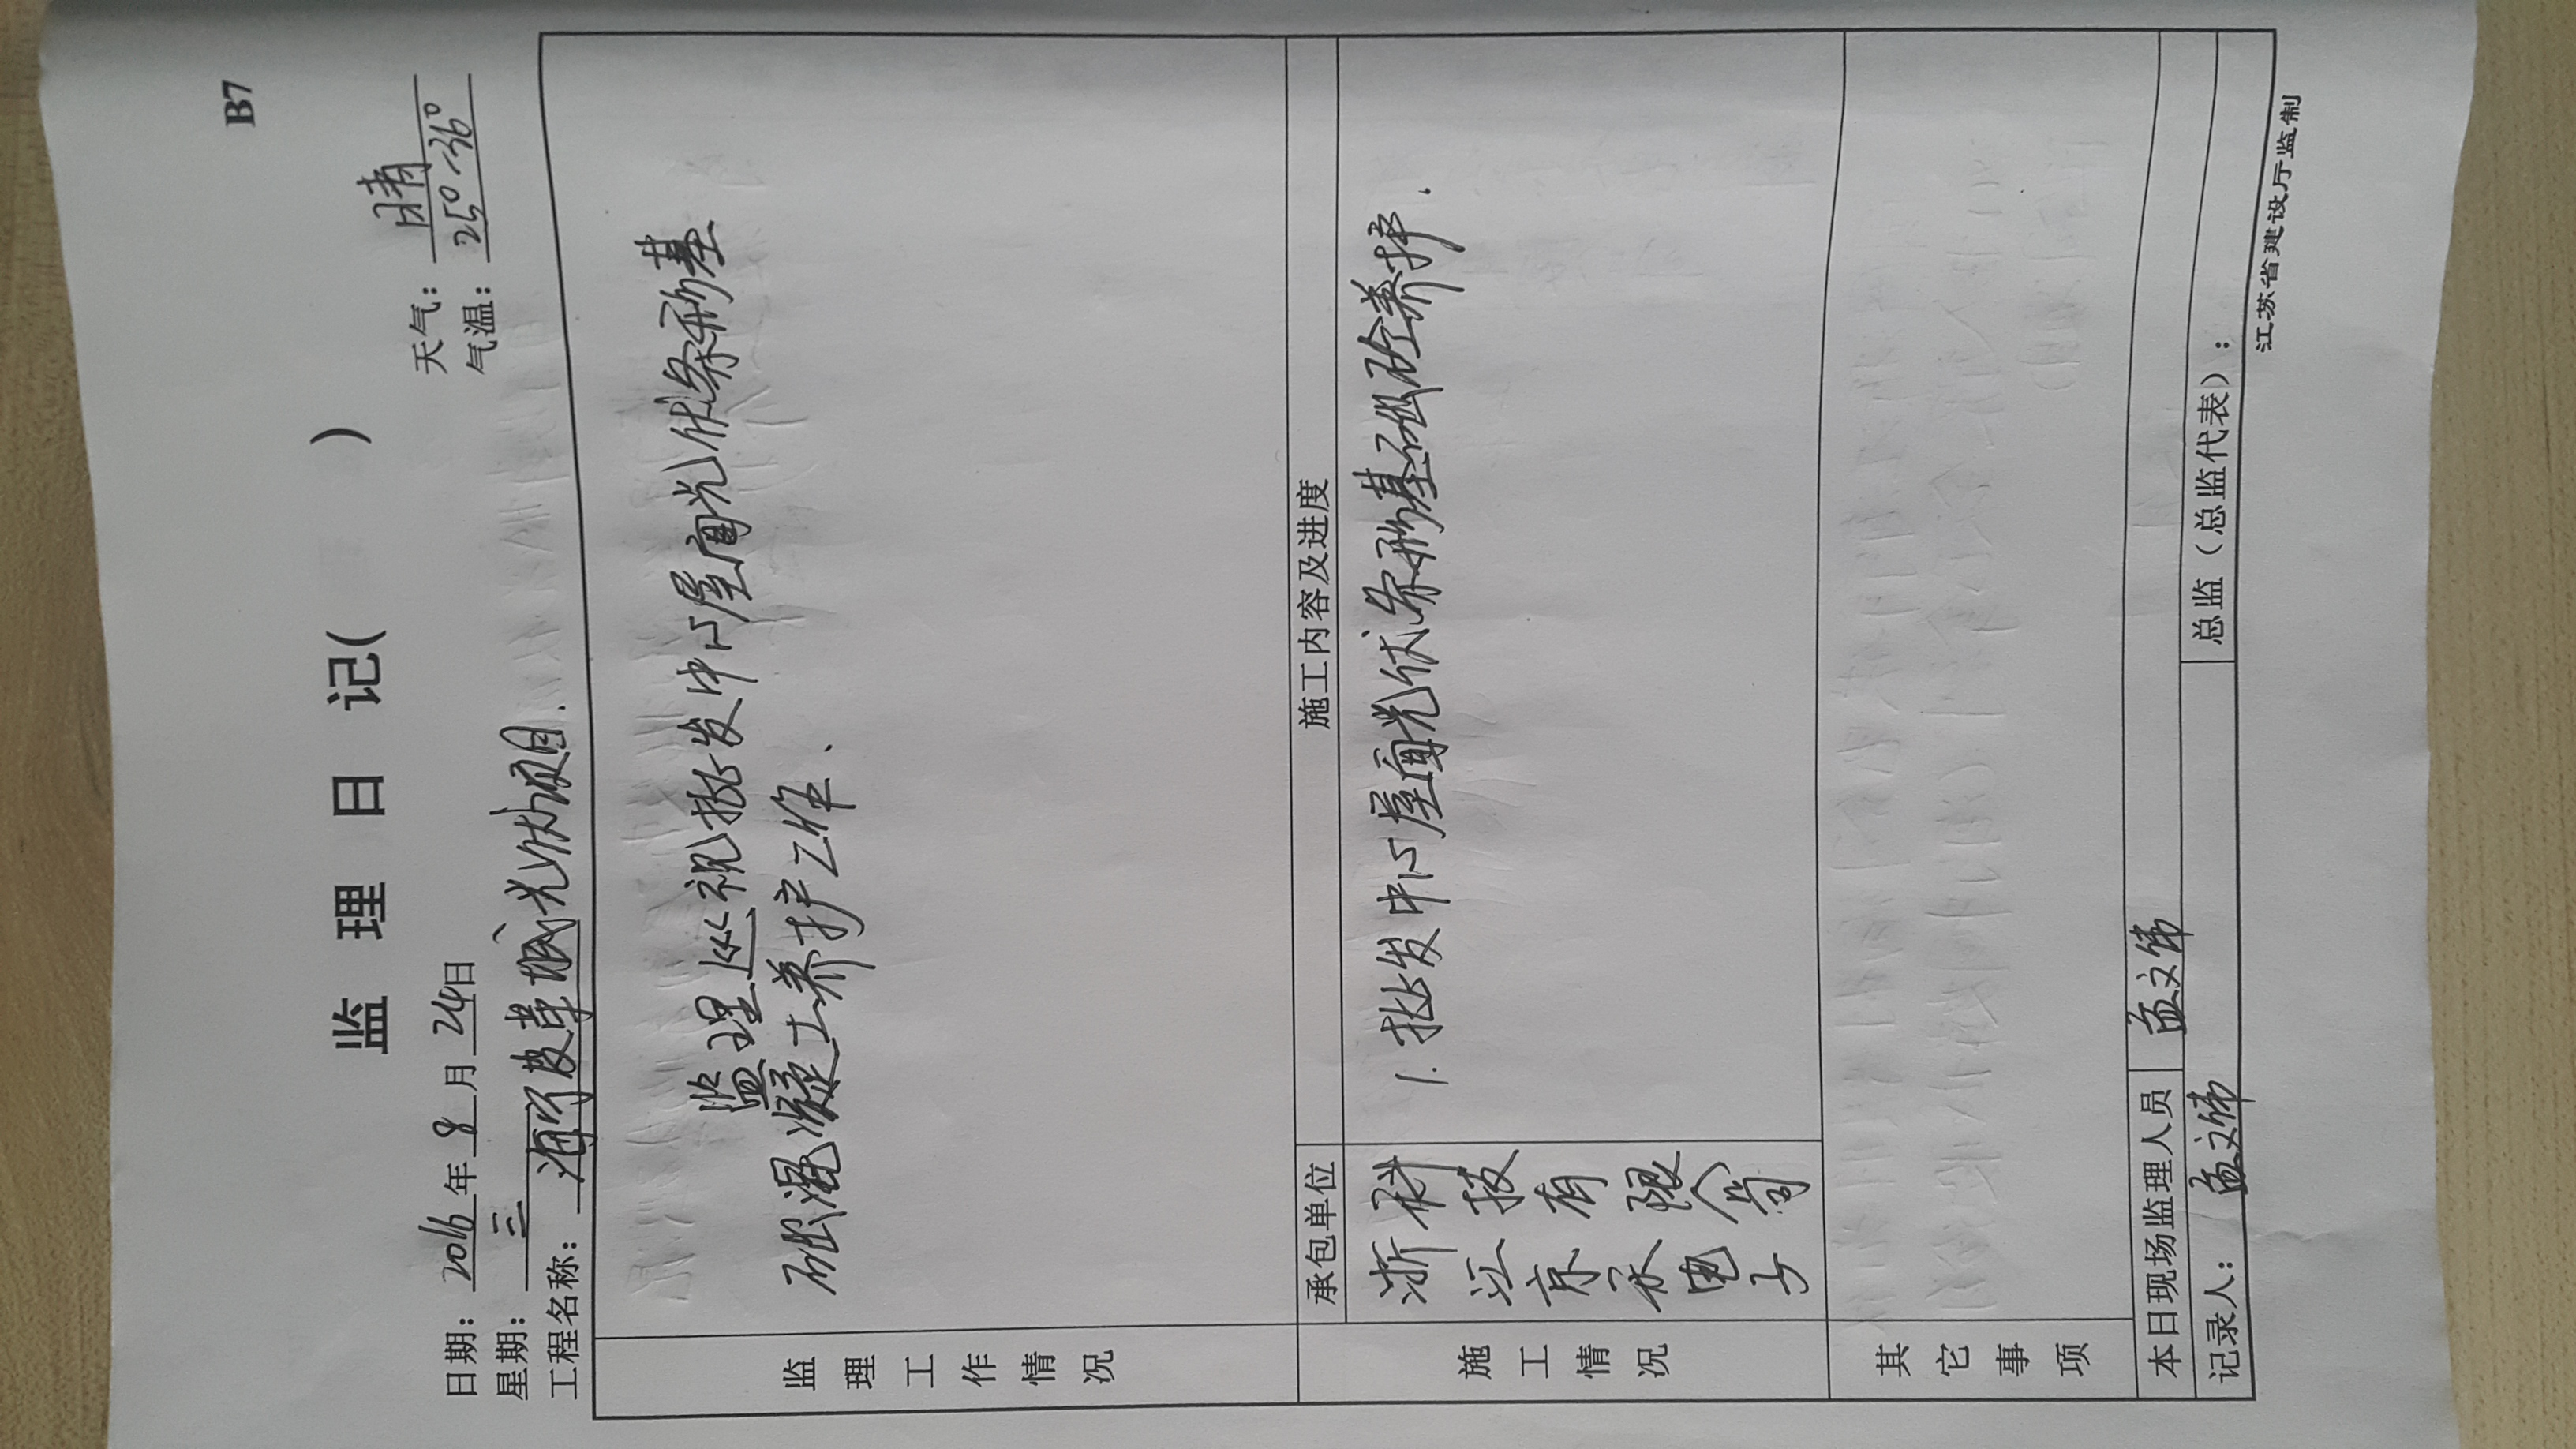 B7
监理日记( )
日期：2016年8月24日 天气：晴
星期：三 气温：25°-36°
工程名称：海宁皮革城光伏项目.
监理工作情况
监理巡视批发中心屋面光伏条形基
础混凝土养护工作.
施工情况
承包单位 施工内容及进度
浙江京永电子
科技有限公司
1.批发中心屋面光伏条形基础砼养护.
其它事项
本日现场监理人员 孟文伟
记录人：孟文伟 总监（总监代表）：
江苏省建设厅监制